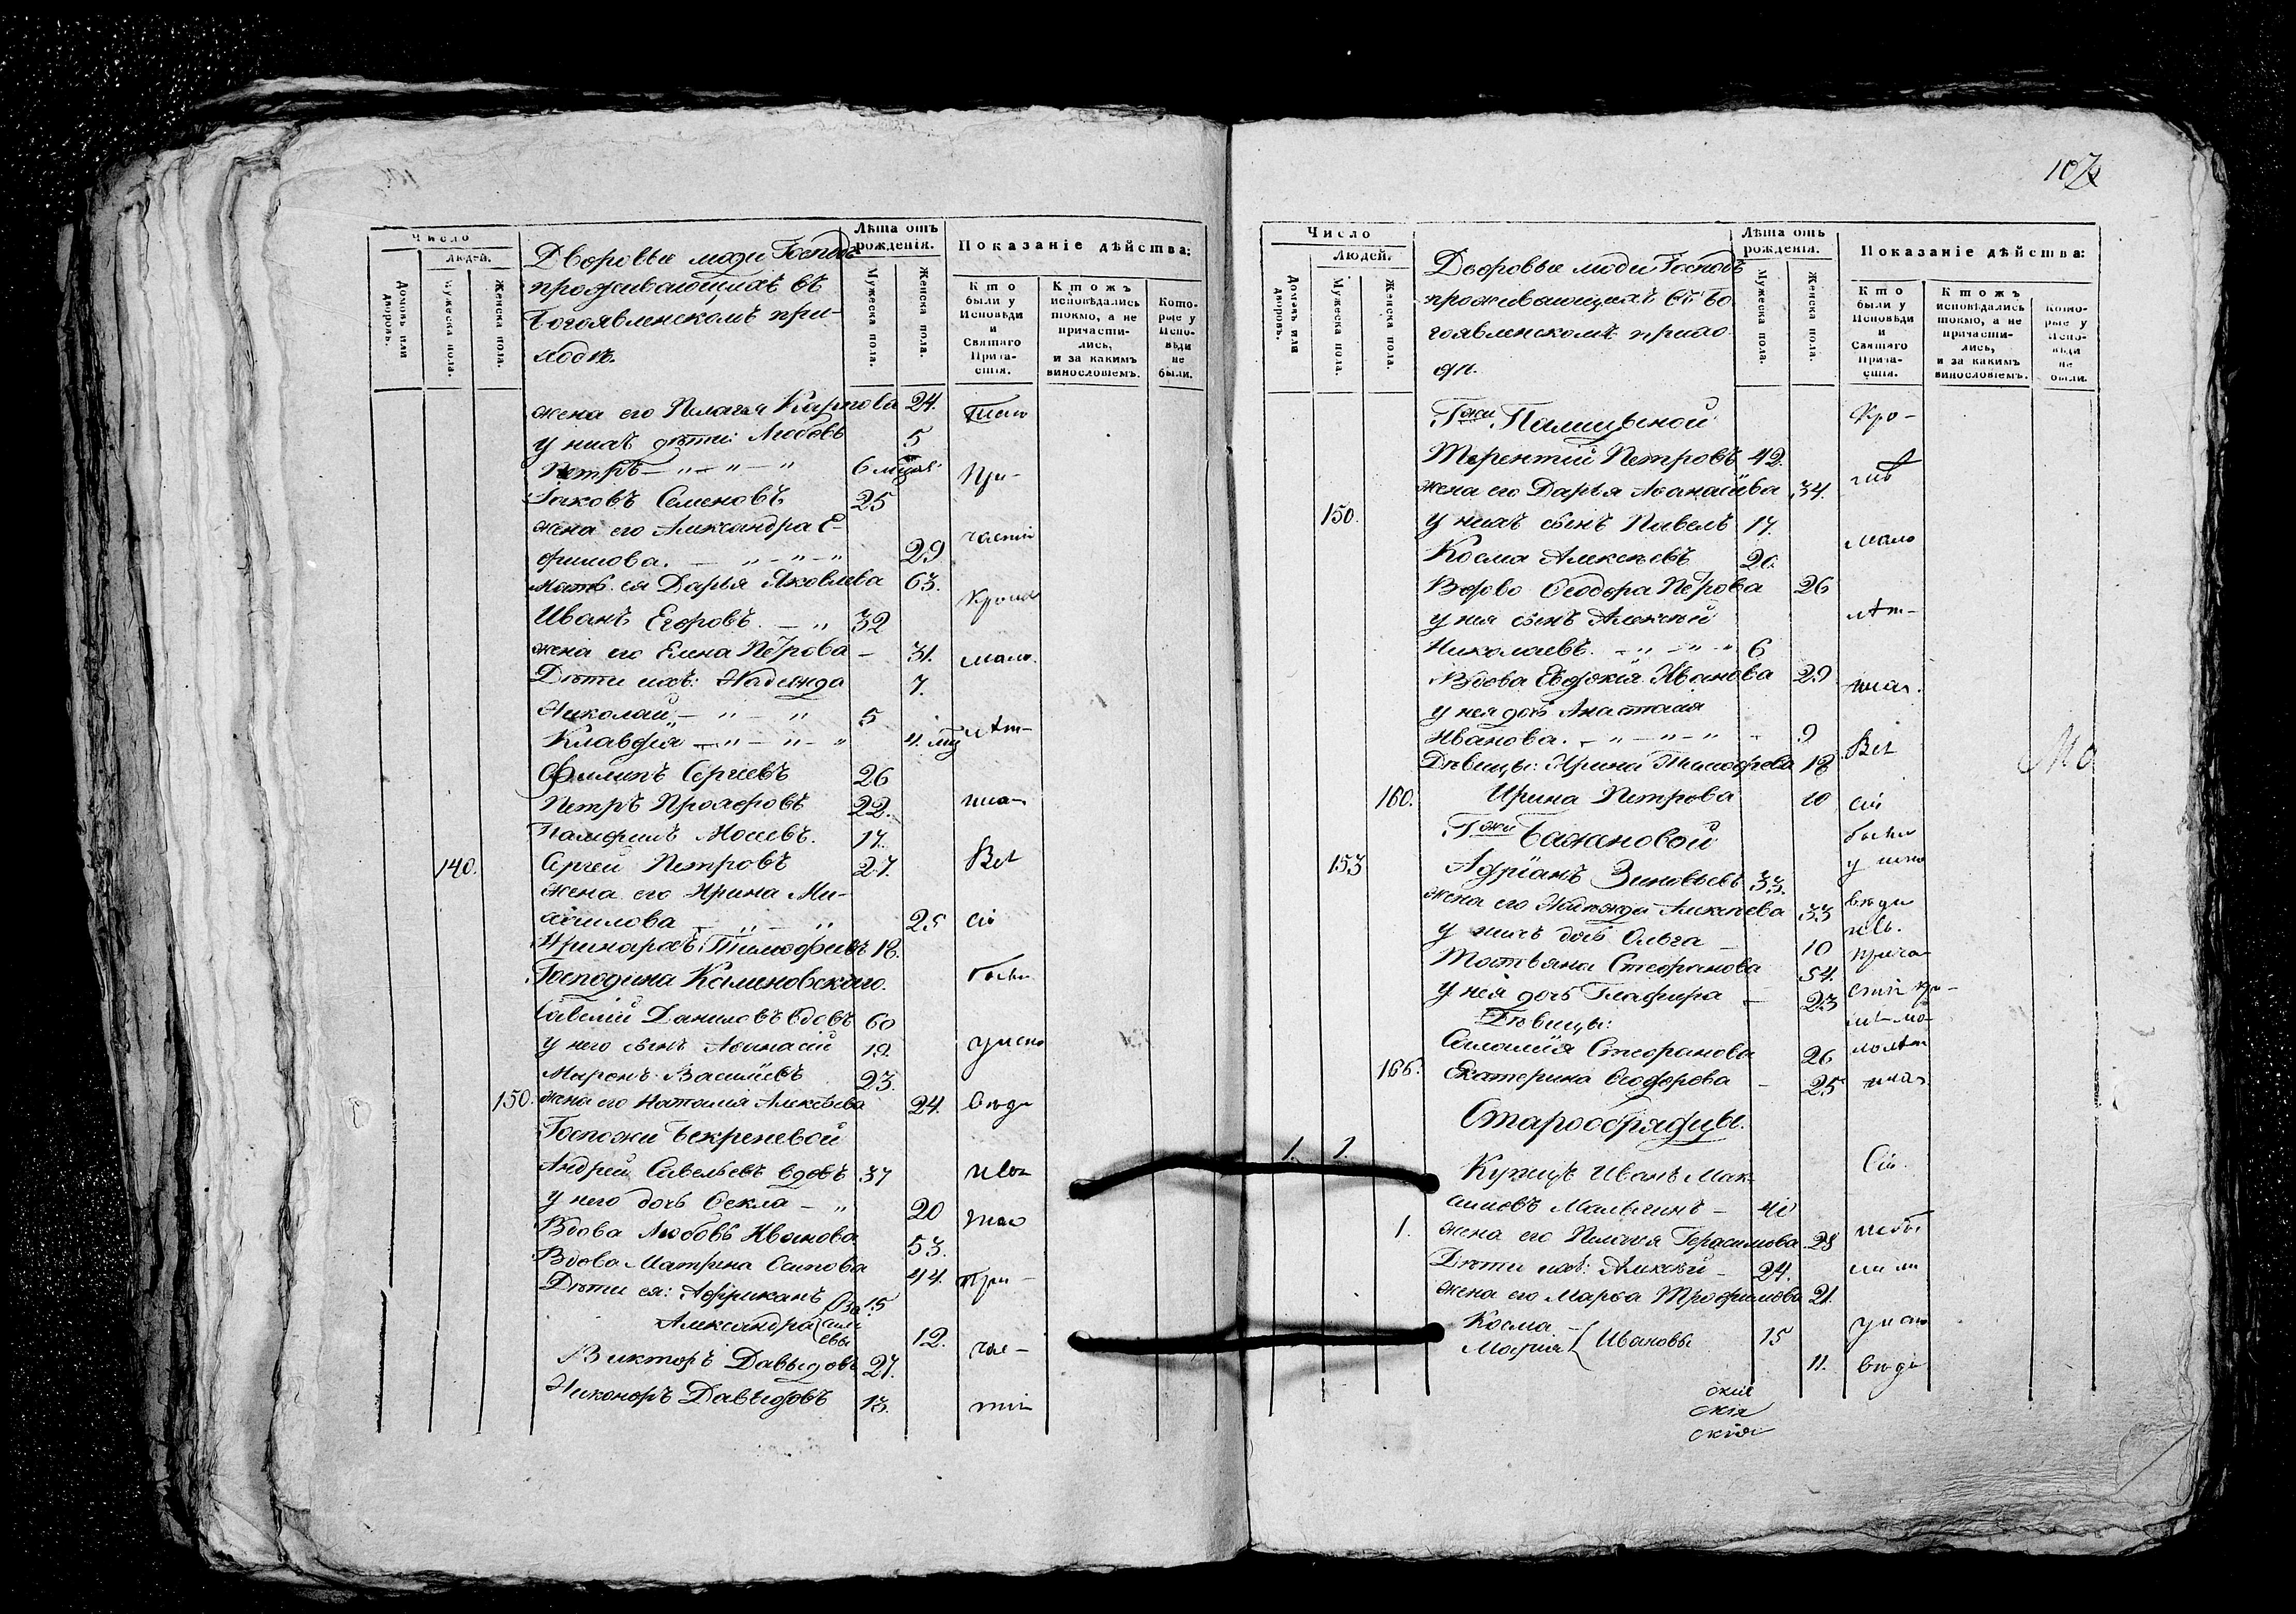 Число
Людей.
Домовъ или дворовъ.
Мужеска пола.
Женска пола.
Дворовые люди Господъ
проживающихъ въ
Богоявленскомъ при-
ходѣ.
Лѣта отъ рожденія.
Мужеска пола.
Женска пола.
Показаніе дѣйства:
Кто были у Исповѣди и Святаго Прича-стія.
Ктожъ исповѣдались токмо, а не причасти-лись, и за какимъ винословіемъ.
Кото-рые у Испо-вѣди не были.
жена его Пелагея Карпова 24.
у нихъ дѣти: Любовь 5
Петръ — „ — „ — „ 6 При-
Іаковъ Семеновъ 25
жена его Александра Е-
фимова. — „ — „ — „ 29 частіи
мать ея Дарья Яковлева 63.
Иванъ Егоровъ. — „ 32 кромѣ
жена его Елена Петрова — 31. мало
Дѣти ихъ: Надежда 7.
Николай — „ — „ 5 лѣт-
Клавдія — „ — „ — „ 4. мц
Филипъ Сергіевъ 26
Петръ Прохоровъ 22. нихъ
Памфилъ Мосеевъ. 17.
140. Сергей Петровъ 27. Всѣ
жена его Ирина Ми-
хаилова — „ — „ 25 сіи
Иринархъ Тимофеевъ 18.
Господина Каменовскаго. были
Савелій Даниловъ вдовъ 60
у него сынъ Афанасій 19. у испо
Миронъ Васильевъ 23.
150. жена его Наталия Алексѣева 24. вѣди
Госпожи Бекреневой
Андрей Савельевъ вдовъ 37
у него дочь Ѳекла — „ 20
Вдова Любовь Иванова 53.
Вдова Матрена Осипова 44. При-
Дѣти ея: Африканъ 15
Александра 12. час-
Ва
силі
евы
Викторъ Давыдовъ 27.
Никоноръ Давыдовъ 13. тіи
107
Число
Людей.
Домовъ или дворовъ.
Мужеска пола.
Женска пола.
Дворовые люди Господъ
проживающихъ въ Бо
гоявленскомъ прихо
дѣ.
Лѣта отъ рожденія.
Мужеска пола.
Женска пола.
Показаніе дѣйства:
Кто были у Исповѣди и Святаго Прича-стія.
Ктожъ исповѣдались токмо, а не причасти-лись, и за какимъ винословіемъ.
Кото-рые у Испо-вѣди не были.
Гжи Палицыной Кро-
Терентій Петровъ 42.
жена его Дарья Афанасіева 34.
150. у нихъ сынъ Павелъ 17.
Косма Алексѣевъ 20. мало
Вдова Ѳеодора Петрова 26
у нея сынъ Алексѣй лѣт-
Николаевъ. — „ — „ — „ 6
Вдова Евдокія Иванова 29 нихъ.
у нея дочь Анастасія
Иванова. — „ — „ — „ 9 Всѣ
Дѣвицы: Ирина Тимофеева 18
160. Ирина Петрова 20 сіи
Гжи Бажановой были
153 Адріанъ Зиновьевъ 33. у испо
жена его Надежда Алексѣева 33 вѣди
у нихъ дочь Ольга — 10 прича
Татьяна Стефанова 54.
у нея дочь Глафира — 23
Дѣвицы:
Соломія Стефанова 26 лолѣт
166. Екатерина Ѳеодорова — 25 нихъ
Старообрядцы.
1. 1. Купецъ Иванъ Мак- Сіи
симовъ — 40
1. жена его Пелагея Герасимова 28 небы
Дѣти ихъ: Алексѣй — 24. ли ни
жена его Марѳа Трофимова 21.
Косма — 15 у испо
Марія 11. вѣди
Ивановы
скія
скія
скія